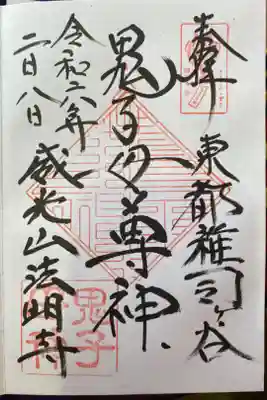 奉拝
東都雑司ヶ谷
鬼子母尊神
令和六年
二月八日
威光山法明寺